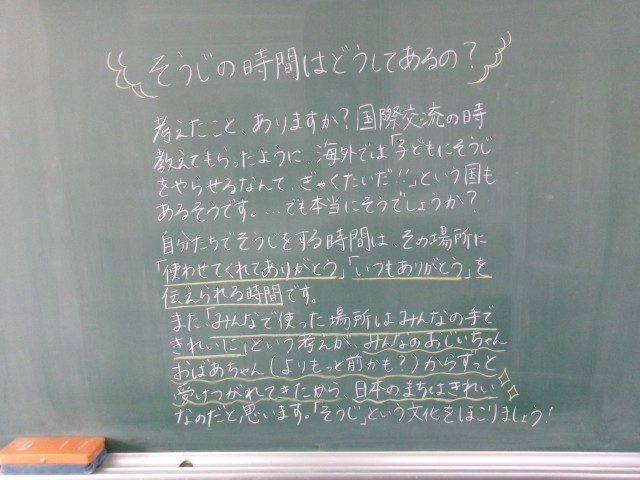 そうじの時間はどうしてあるの?
考えたこと、ありますか?国際交流の時
教えてもらったように、海外では「子どもにそうじ
をやらせるなんて、ぎゃくたいだ!!」という国も
あるそうです。…でも本当にそうでしょうか?
自分たちでそうじをする時間は、その場所に
「使わせてくれてありがとう」「いつもありがとう」を
伝えられる時間です。
また「みんなで使った場所はみんなの手で
きれいに」という考えが、みんなのおじいちゃん
おばあちゃん(よりもっと前かも?)からずっと
受けつがれてきたから、日本のまちはきれい
なのだと思います。「そうじ」という文化をほこりましょう!